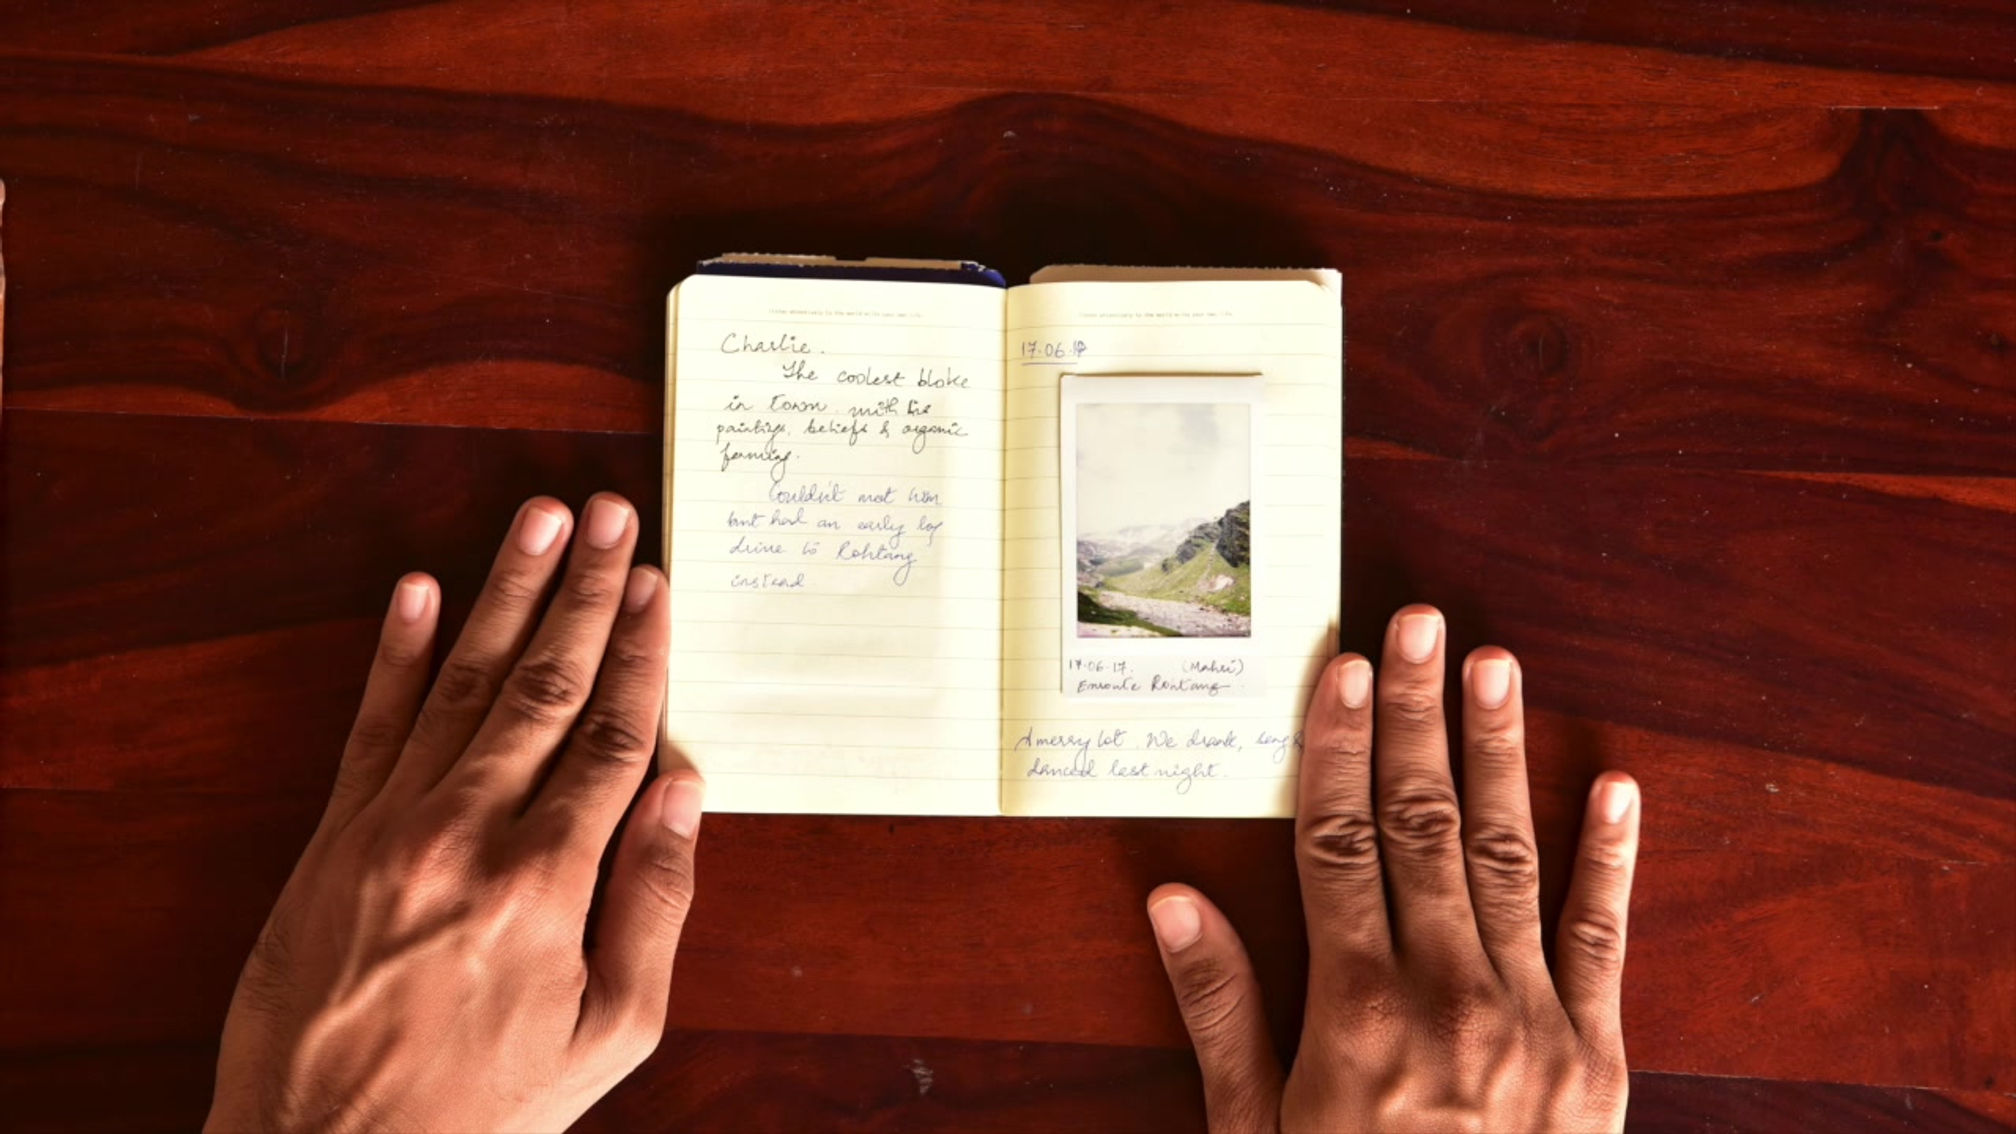 Charlie.
The coolest bloke
in town. with his
paintings, beliefs & organic
farming.
Couldn't meet him
but had an early log
drive to Rohtang
instead.
17.06.17
17.06.17. (Mahri)
Enroute Rohtang
A merry lot. We drank, sang &
danced last night.